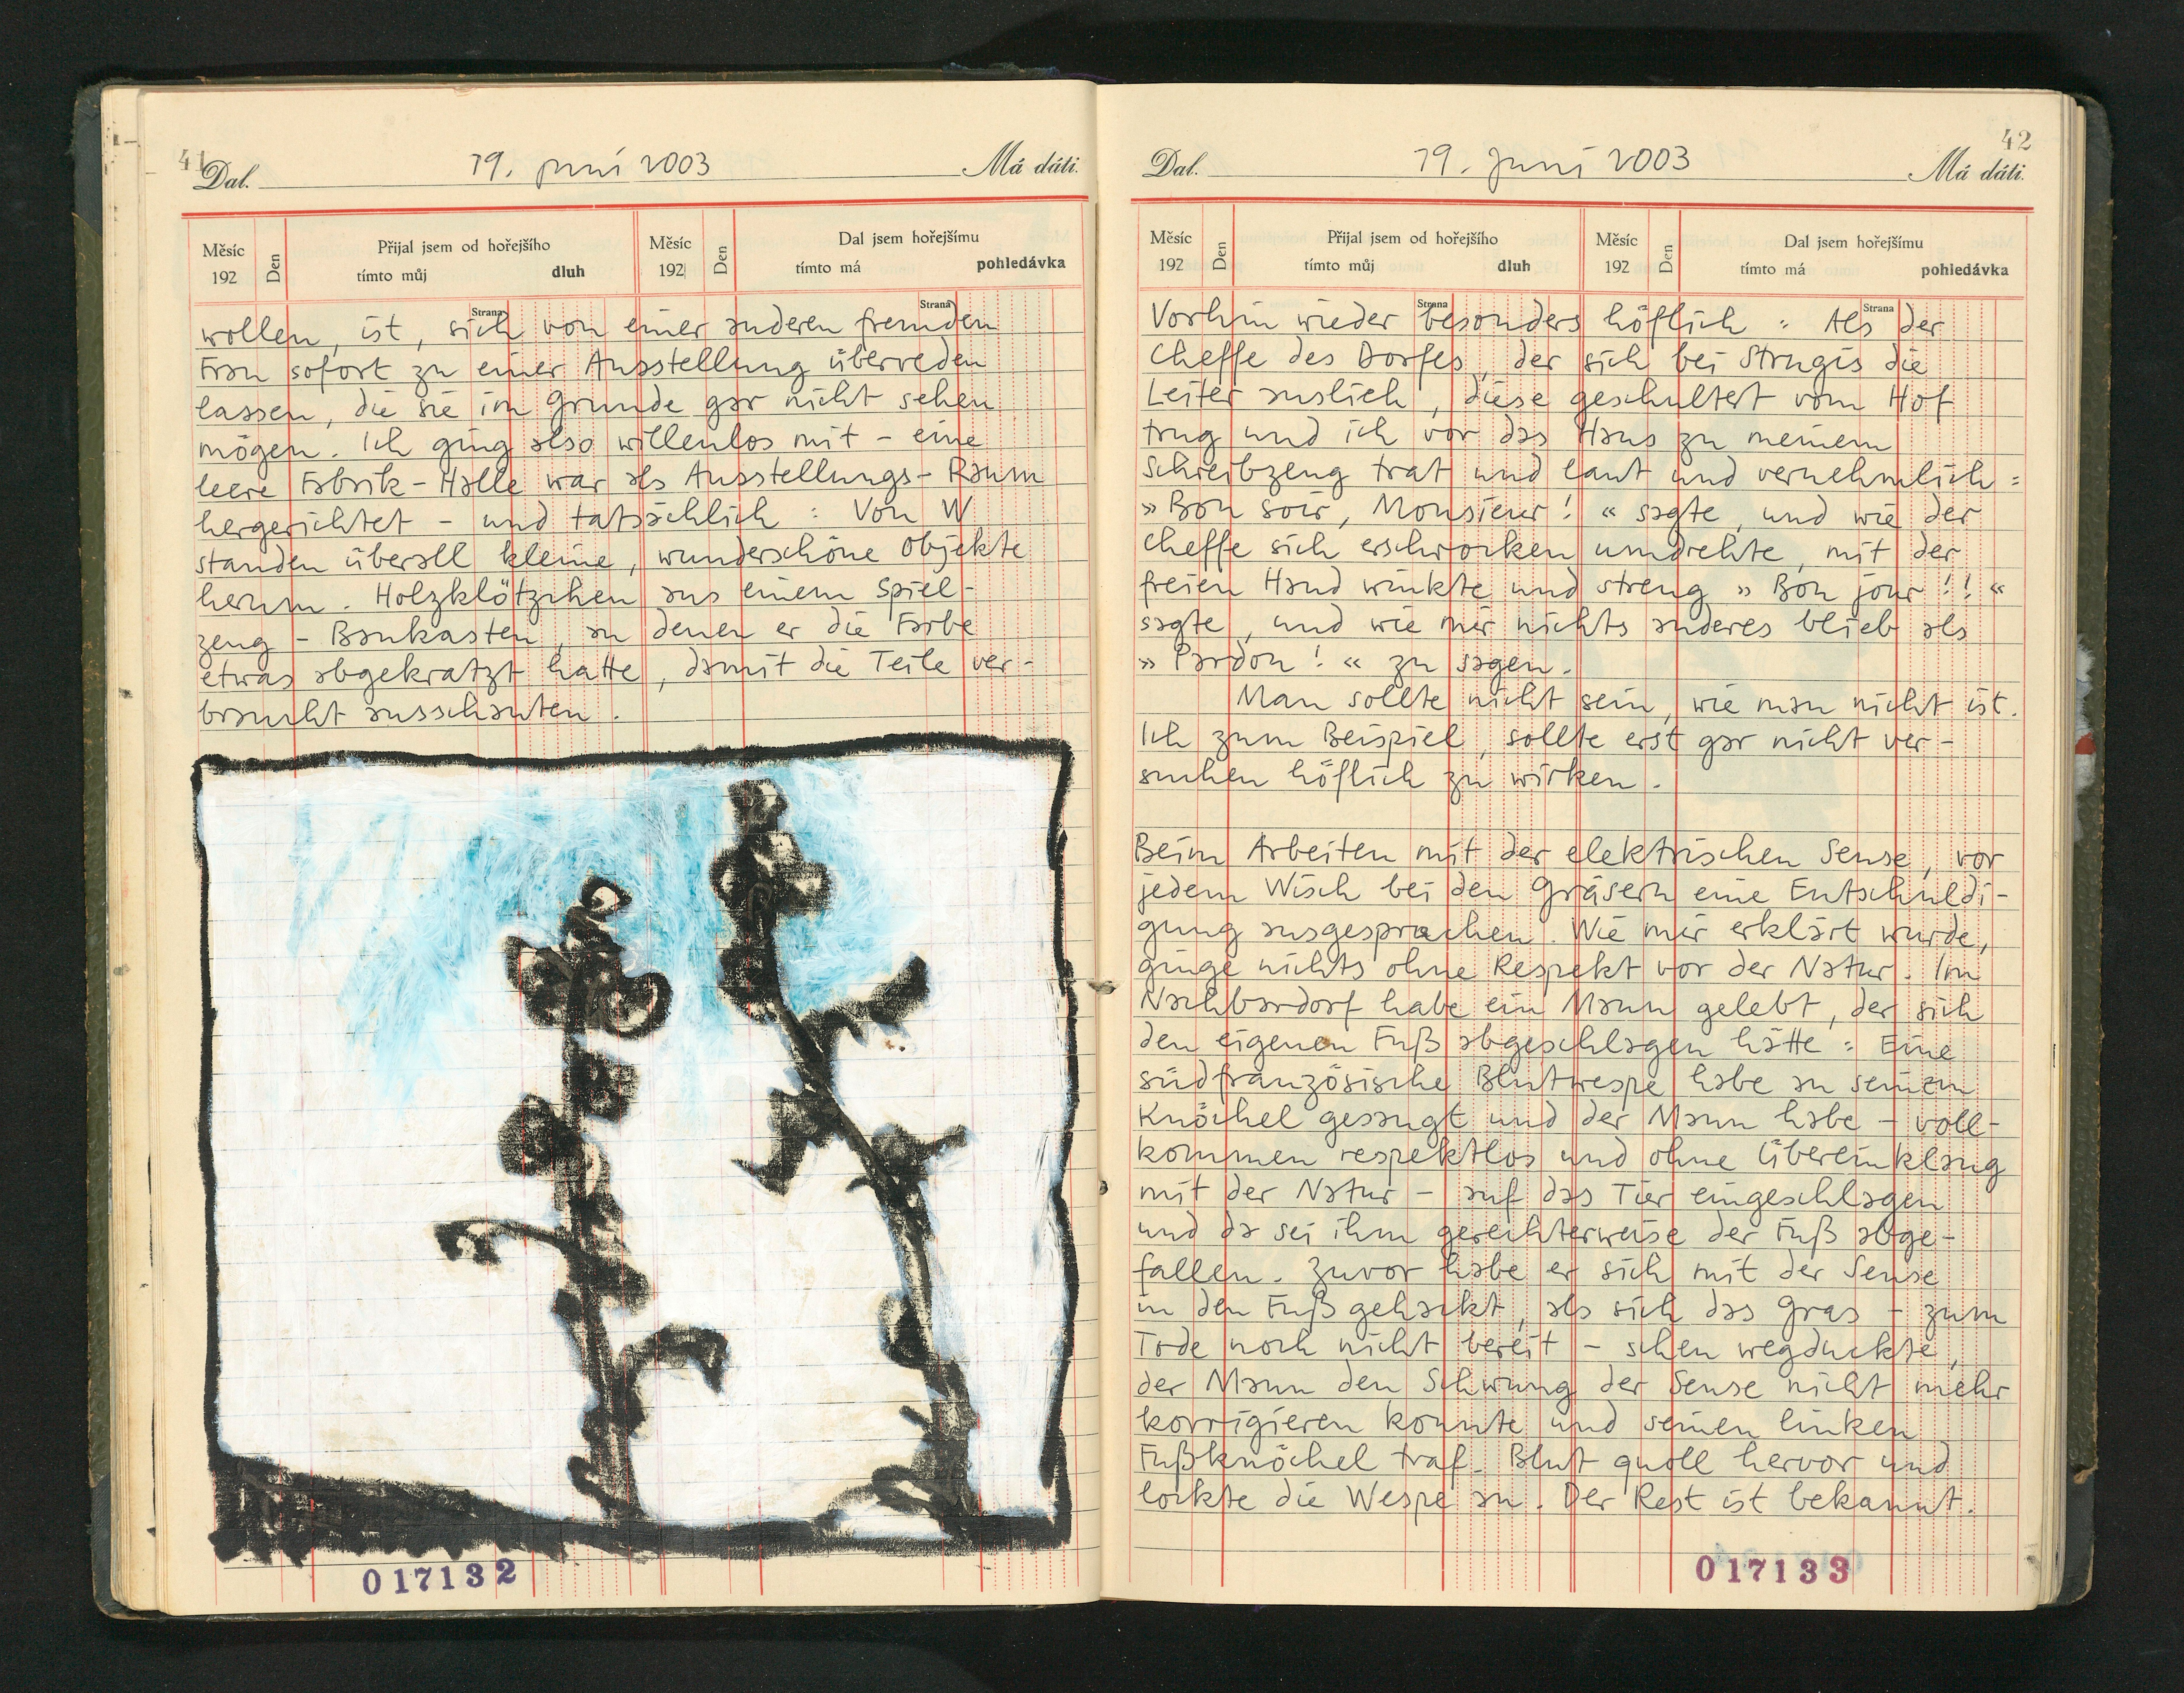 41
Dal. 19. Juni 2003 Má dáti.
Měsíc 192 Den Přijal jsem od hořejšího tímto můj dluh Měsíc 192 Den Dal jsem hořejšímu tímto má pohledávka
Strana Strana
wollen, ist, sich von einer anderen fremden
Frau sofort zu einer Ausstellung überreden
lassen, die sie im Grunde gar nicht sehen
mögen. Ich ging also willenlos mit – eine
leere Fabrik-Halle war als Ausstellungs-Raum
hergerichtet – und tatsächlich : Von W
standen überall kleine, wunderschöne Objekte
herum. Holzklötzchen aus einem Spiel-
zeug – Baukasten, an denen er die Farbe
etwas abgekratzt hatte, damit die Teile ver-
braucht ausschauten.
017132
42
Dal. 19. Juni 2003 Má dáti.
Měsíc 192 Den Přijal jsem od hořejšího tímto můj dluh Měsíc 192 Den Dal jsem hořejšímu tímto má pohledávka
Strana Strana
Vorhin wieder besonders höflich : Als der
Cheffe des Dorfes, der sich bei Strugis die
Leiter auslieh, diese geschultert vom Hof
trug und ich vor das Haus zu meinem
Schreibzeug trat und laut und vernehmlich :
» Bon soir, Monsieur! « sagte, und wie der
Cheffe sich erschrocken umdrehte, mit der
freien Hand winkte und streng » Bon jour!! «
sagte, und wie mir nichts anderes blieb als
» Pardon! « zu sagen.
Man sollte nicht sein, wie man nicht ist.
Ich zum Beispiel, sollte erst gar nicht ver-
suchen höflich zu wirken.
Beim Arbeiten mit der elektrischen Sense, vor
jedem Wisch bei den Gräsern eine Entschuldi-
gung ausgesprochen. Wie mir erklärt wurde,
ginge nichts ohne Respekt vor der Natur. Im
Nachbardorf habe ein Mann gelebt, der sich
den eigenen Fuß abgeschlagen hätte : Eine
südfranzösische Blutwespe habe an seinem
Knöchel gesaugt und der Mann habe – voll-
kommen respektlos und ohne Übereinklang
mit der Natur – auf das Tier eingeschlagen
und da sei ihm gerechterweise der Fuß abge-
fallen. Zuvor habe er sich mit der Sense
in den Fuß gehackt, als sich das Gras – zum
Tode noch nicht bereit – scheu wegduckte,
der Mann den Schwung der Sense nicht mehr
korrigieren konnte und seinen linken
Fußknöchel traf. Blut quoll hervor und
lockte die Wespe an. Der Rest ist bekannt.
017133